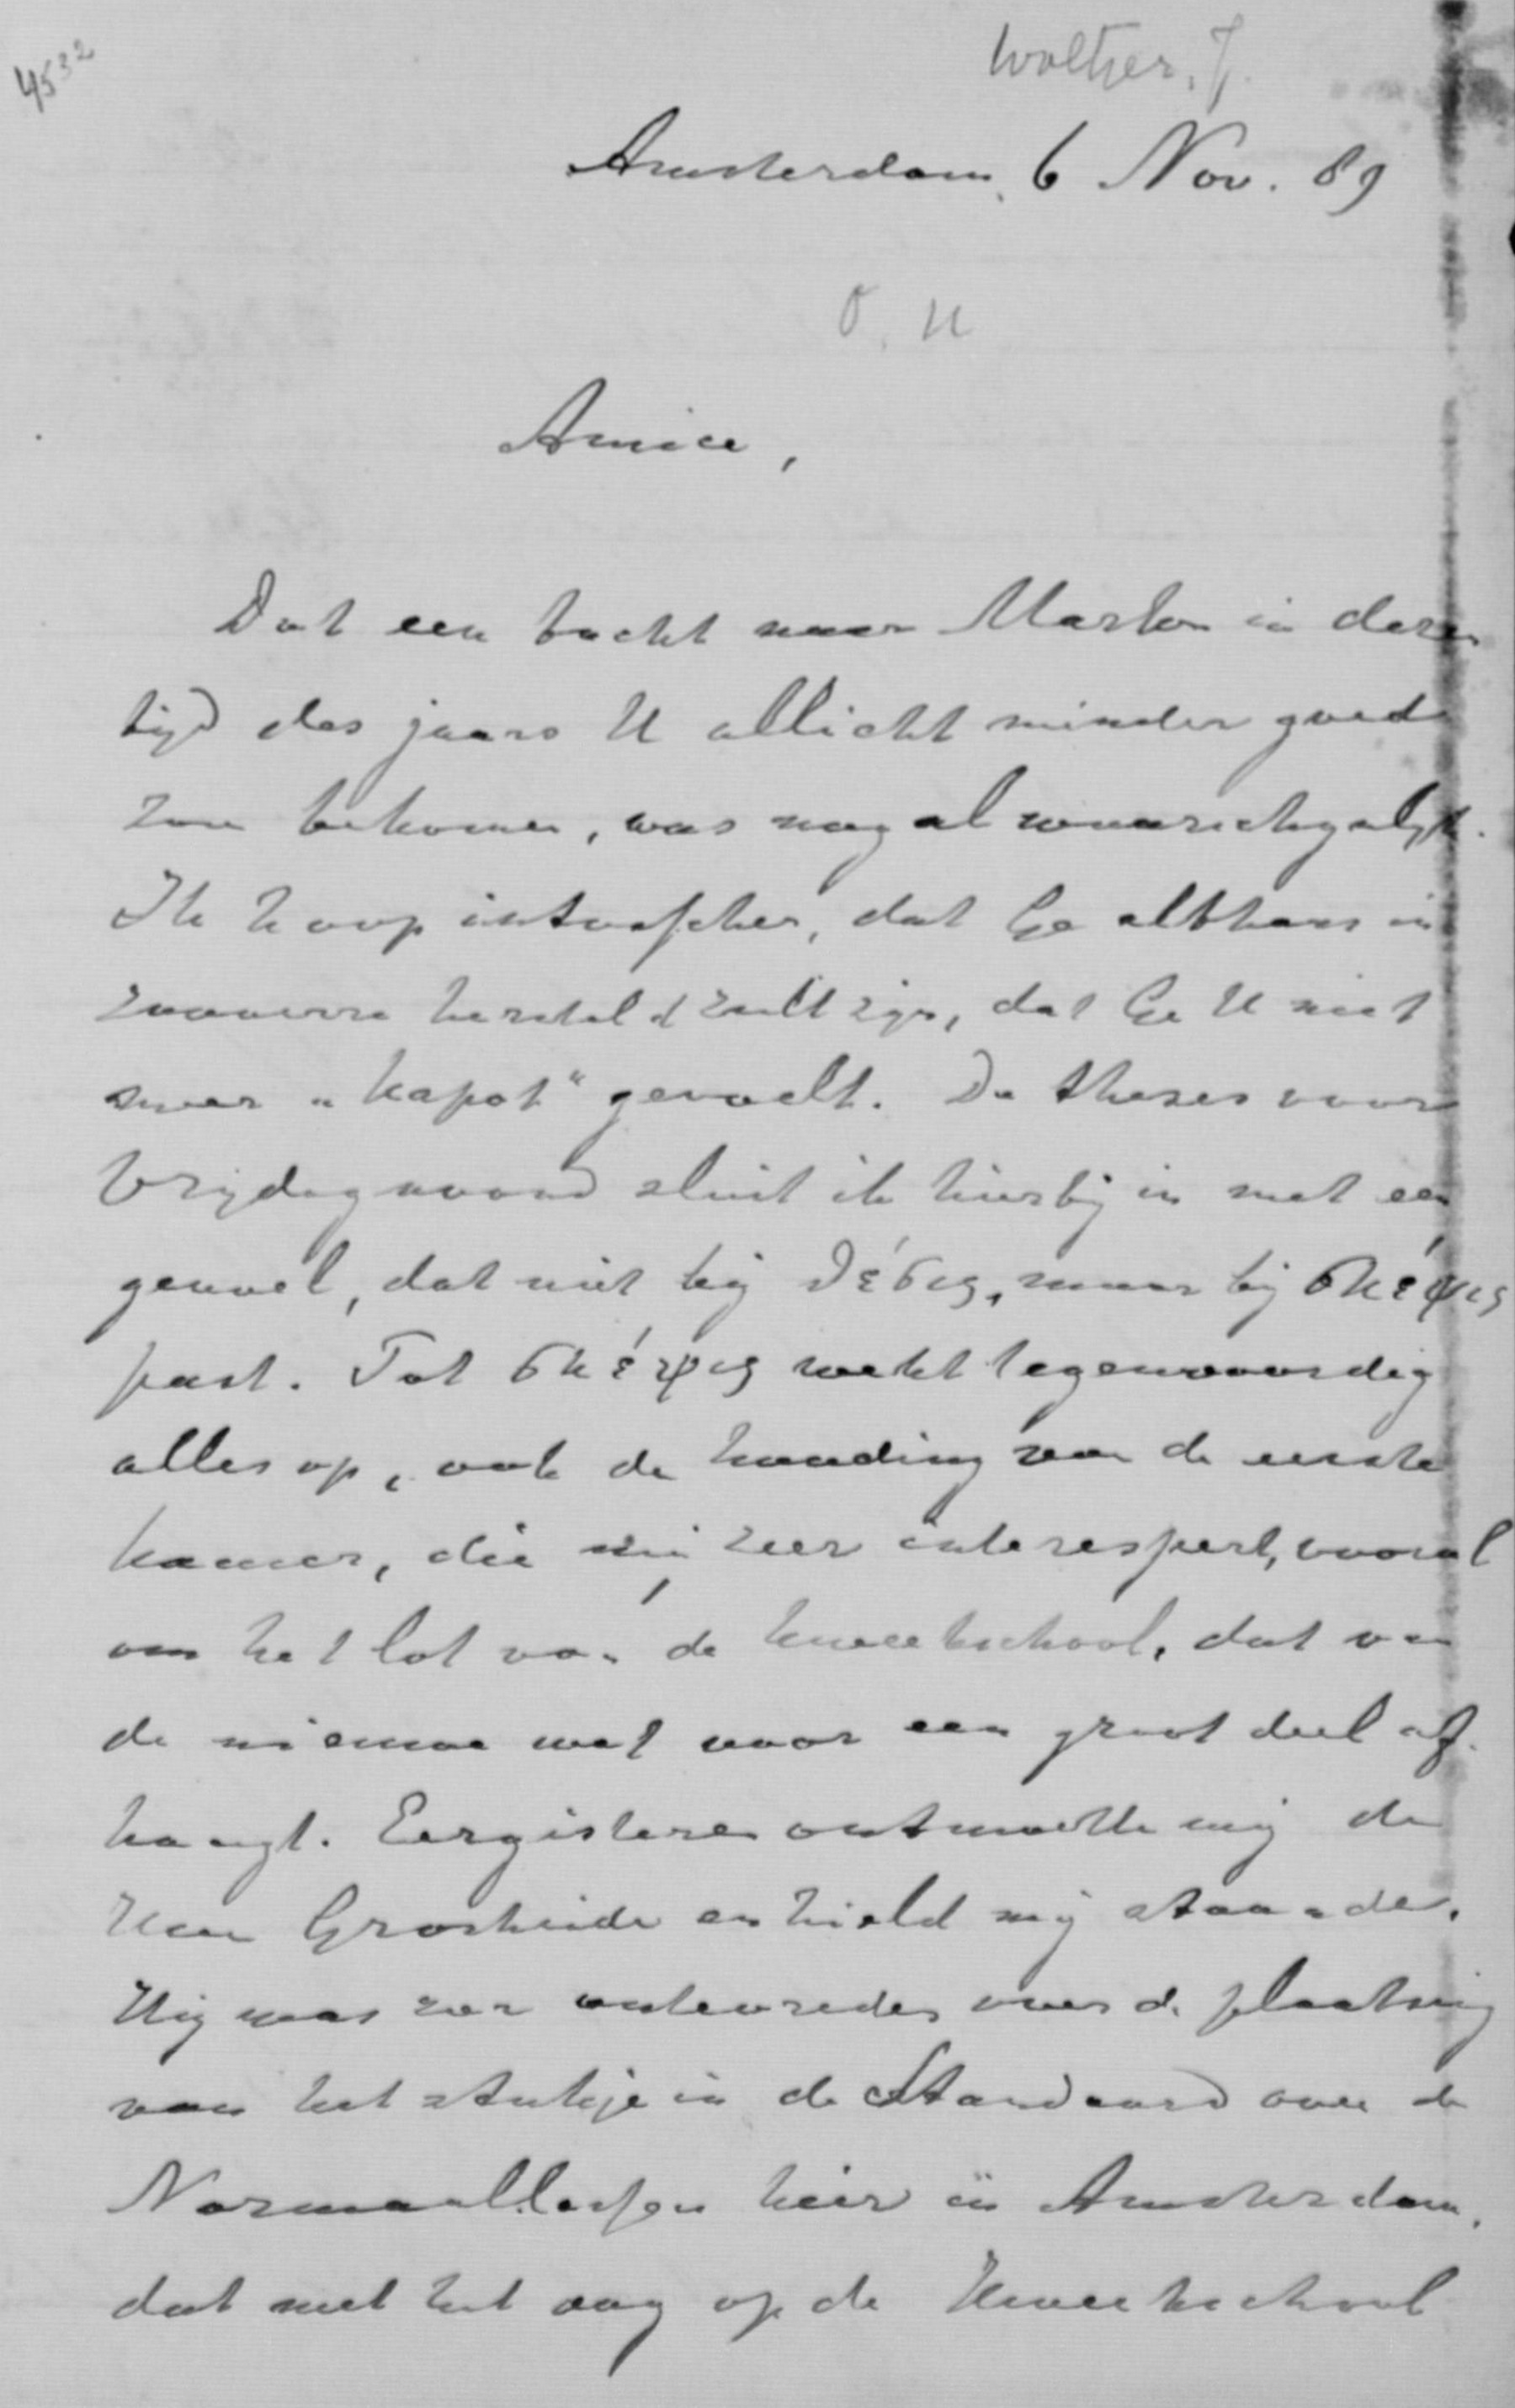 4532
Woltjer, J.
Amsterdam, 6 Nov. 89
O. U
Amice,
Dat een tocht naar Marken in dezen
tijd des jaars U allicht minder goed
zou bekomen, was nog al waarschijnlijk.
Ik hoop intusschen, dat Ge althans in
zooverre hersteld zult zijn, dat Ge U niet
meer "kapot" gevoelt. De theses voor
Vrijdagavond sluit ik hierbij in met een
gevoel, dat niet bij θέσις, maar bij σκέψις
past. Tot σκέψις wekt tegenwoordig
alles op, ook de houding van de eerste
kamer, die mij zeer interesseert, vooral
om het lot van de kweekschool, dat van
de nieuwe wet voor een groot deel af-
hangt. Eergisteren ontmoette mij de
Heer Grosheide en hield mij staande.
Hij was zeer ontevreden over de plaatsing
van het stukje in de Standaard over de
Normaallessen hier in Amsterdam,
dat met het oog op de Kweekschool